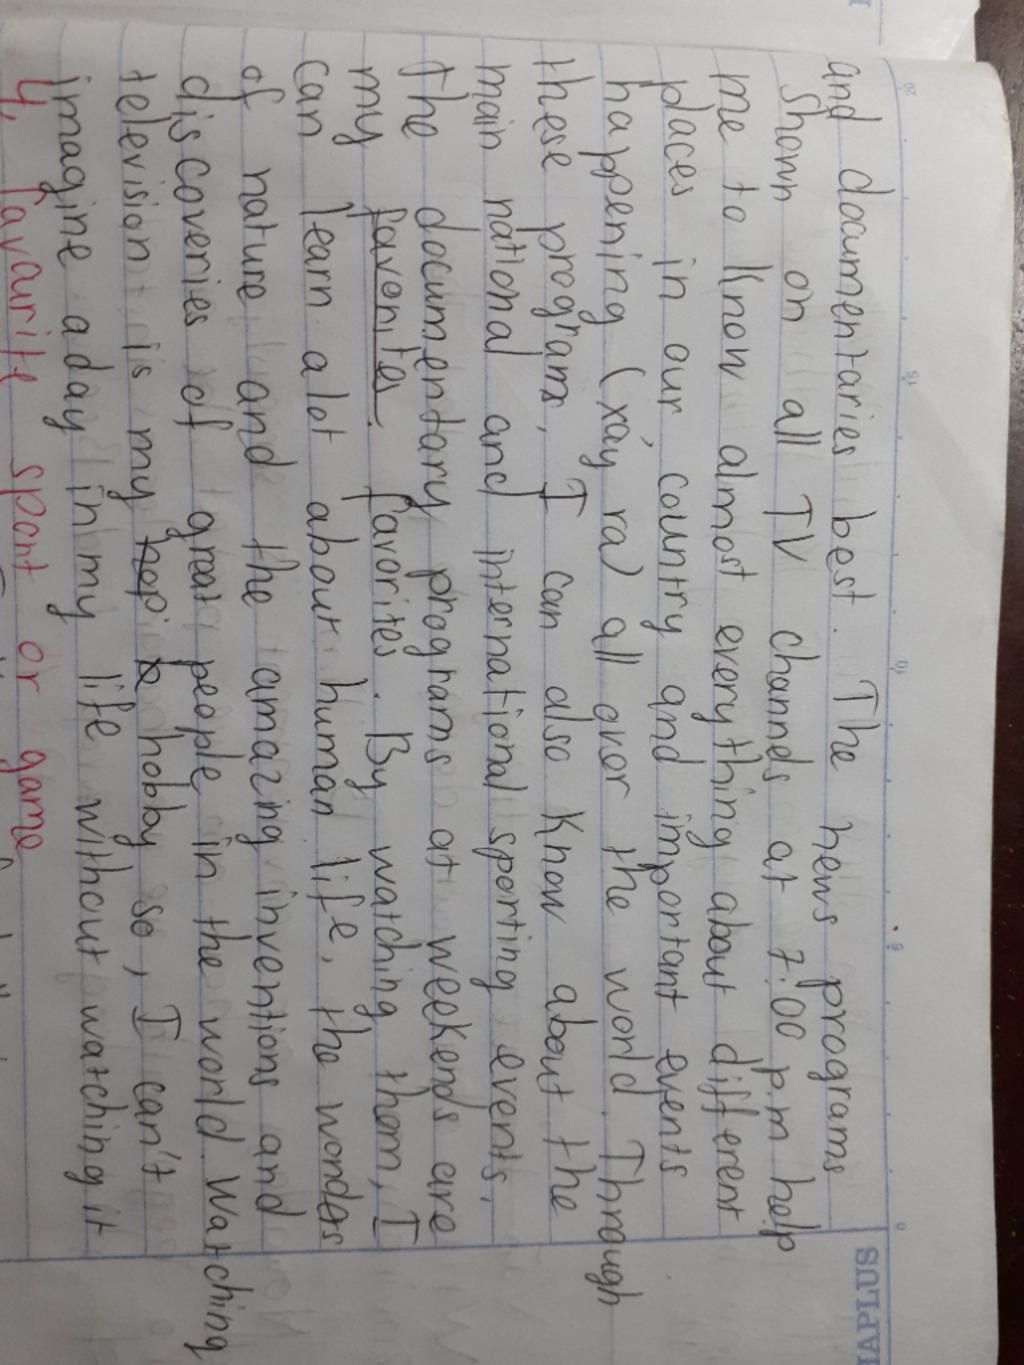 and documentaries best. The news programs
shown on all TV channels at 7:00 p.m help
me to know almost everything about different
places in our country and important events
happening (xảy ra) all over the world. Through
these programs, I can also know about the
main national and international sporting events,
the documentary programs at weekends are
my favenites. favorites. By watching them, I
can learn a lot about human life, the wonders
of nature and the amazing inventions and
discoveries of great people in the world. Watching
television is my hobby so, I can't
imagine a day in my life without watching it
4, favourite sport or game
20
15
10
5
0
HAPLUS